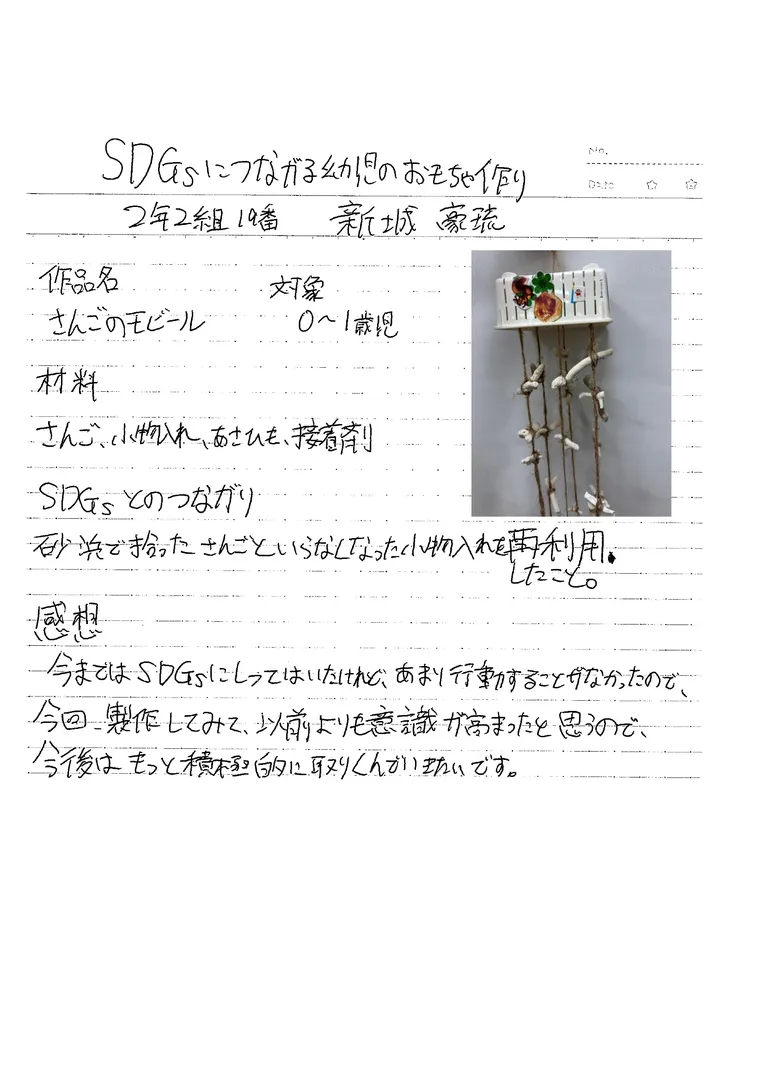 SDGsにつながる幼児のおもちゃ作り
No.
Date
2年2組19番 新城 豪琉
作品名 対象
さんごのモビール 0〜1歳児
材料
さんご、小物入れ、あさひも、接着剤
SDGsとのつながり
砂浜で拾ったさんごといらなくなった小物入れを再利用.
したこと。
感想
今まではSDGsにしってはいたけれど、あまり行動することがなかったので、
今回、製作してみて、以前よりも意識が高まったと思うので、
今後はもっと積極的に取りくんでいきたいです。